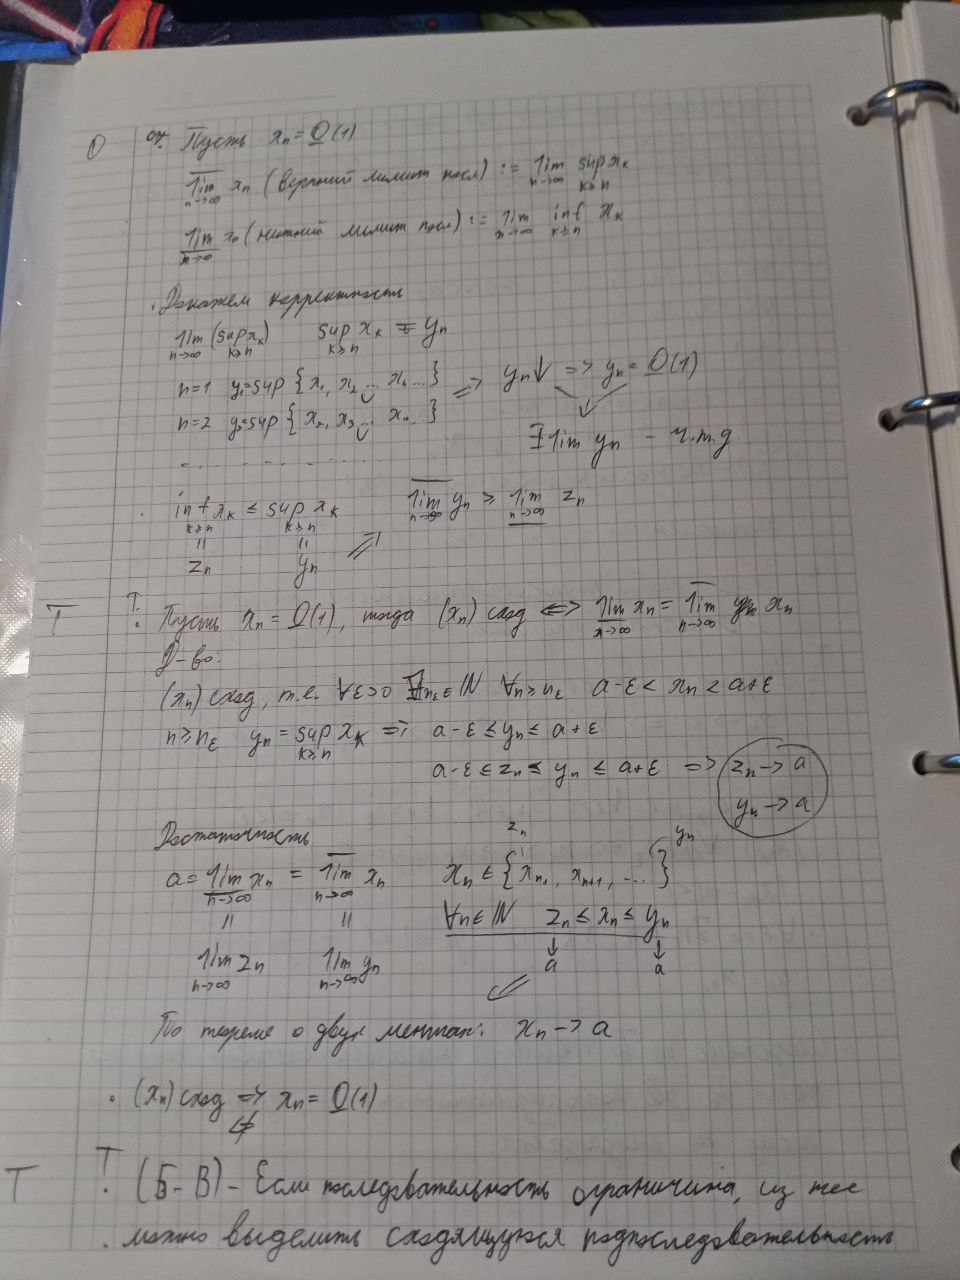 О опр. Пусть xₙ = O(1)
lim‾ n→∞ xₙ (верхний лимит посл) := lim n→∞ sup k≥n xₖ
lim̲ n→∞ xₙ (нижний лимит посл) := lim n→∞ inf k≥n xₖ
. Докажем корректность
lim n→∞ (sup k≥n xₖ) sup k≥n xₖ = yₙ
n=1 y₁=sup {x₁, x₂ ... xₙ ...} => yₙ↓ => yₙ = O(1)
n=2 y₂=sup {x₂, x₃ ... xₙ ...}
∃ lim yₙ - ч.т.д
. . . . . . . . . .
. inf k≥n xₖ ≤ sup k≥n xₖ lim‾ n→∞ yₙ ≥ lim̲ n→∞ zₙ
|| || =>
zₙ yₙ
Т Т. Пусть xₙ = O(1), тогда (xₙ) сход <=> lim̲ n→∞ xₙ = lim‾ n→∞ xₙ
Д-во:
(xₙ) сход, т.е. ∀ε>0 ∃n_ε∈ℕ ∀n≥n_ε a-ε < xₙ < a+ε
n≥n_ε yₙ = sup k≥n xₖ => a-ε ≤ yₙ ≤ a+ε
a-ε ≤ zₙ ≤ yₙ ≤ a+ε => zₙ → a
yₙ → a
Достаточность zₙ yₙ
a = lim̲ n→∞ xₙ = lim‾ n→∞ xₙ xₙ ∈ {xₙ, xₙ₊₁, ...}
|| || ∀n∈ℕ zₙ ≤ xₙ ≤ yₙ
lim n→∞ zₙ lim n→∞ yₙ ↓ a ↓ a
По теореме о двух ментах: xₙ → a
. (xₙ) сход => xₙ = O(1)
⇍
Т Т. (Б-В) - Если последовательность ограничина, из нее
. можно выделить сходящуюся подпоследовательность